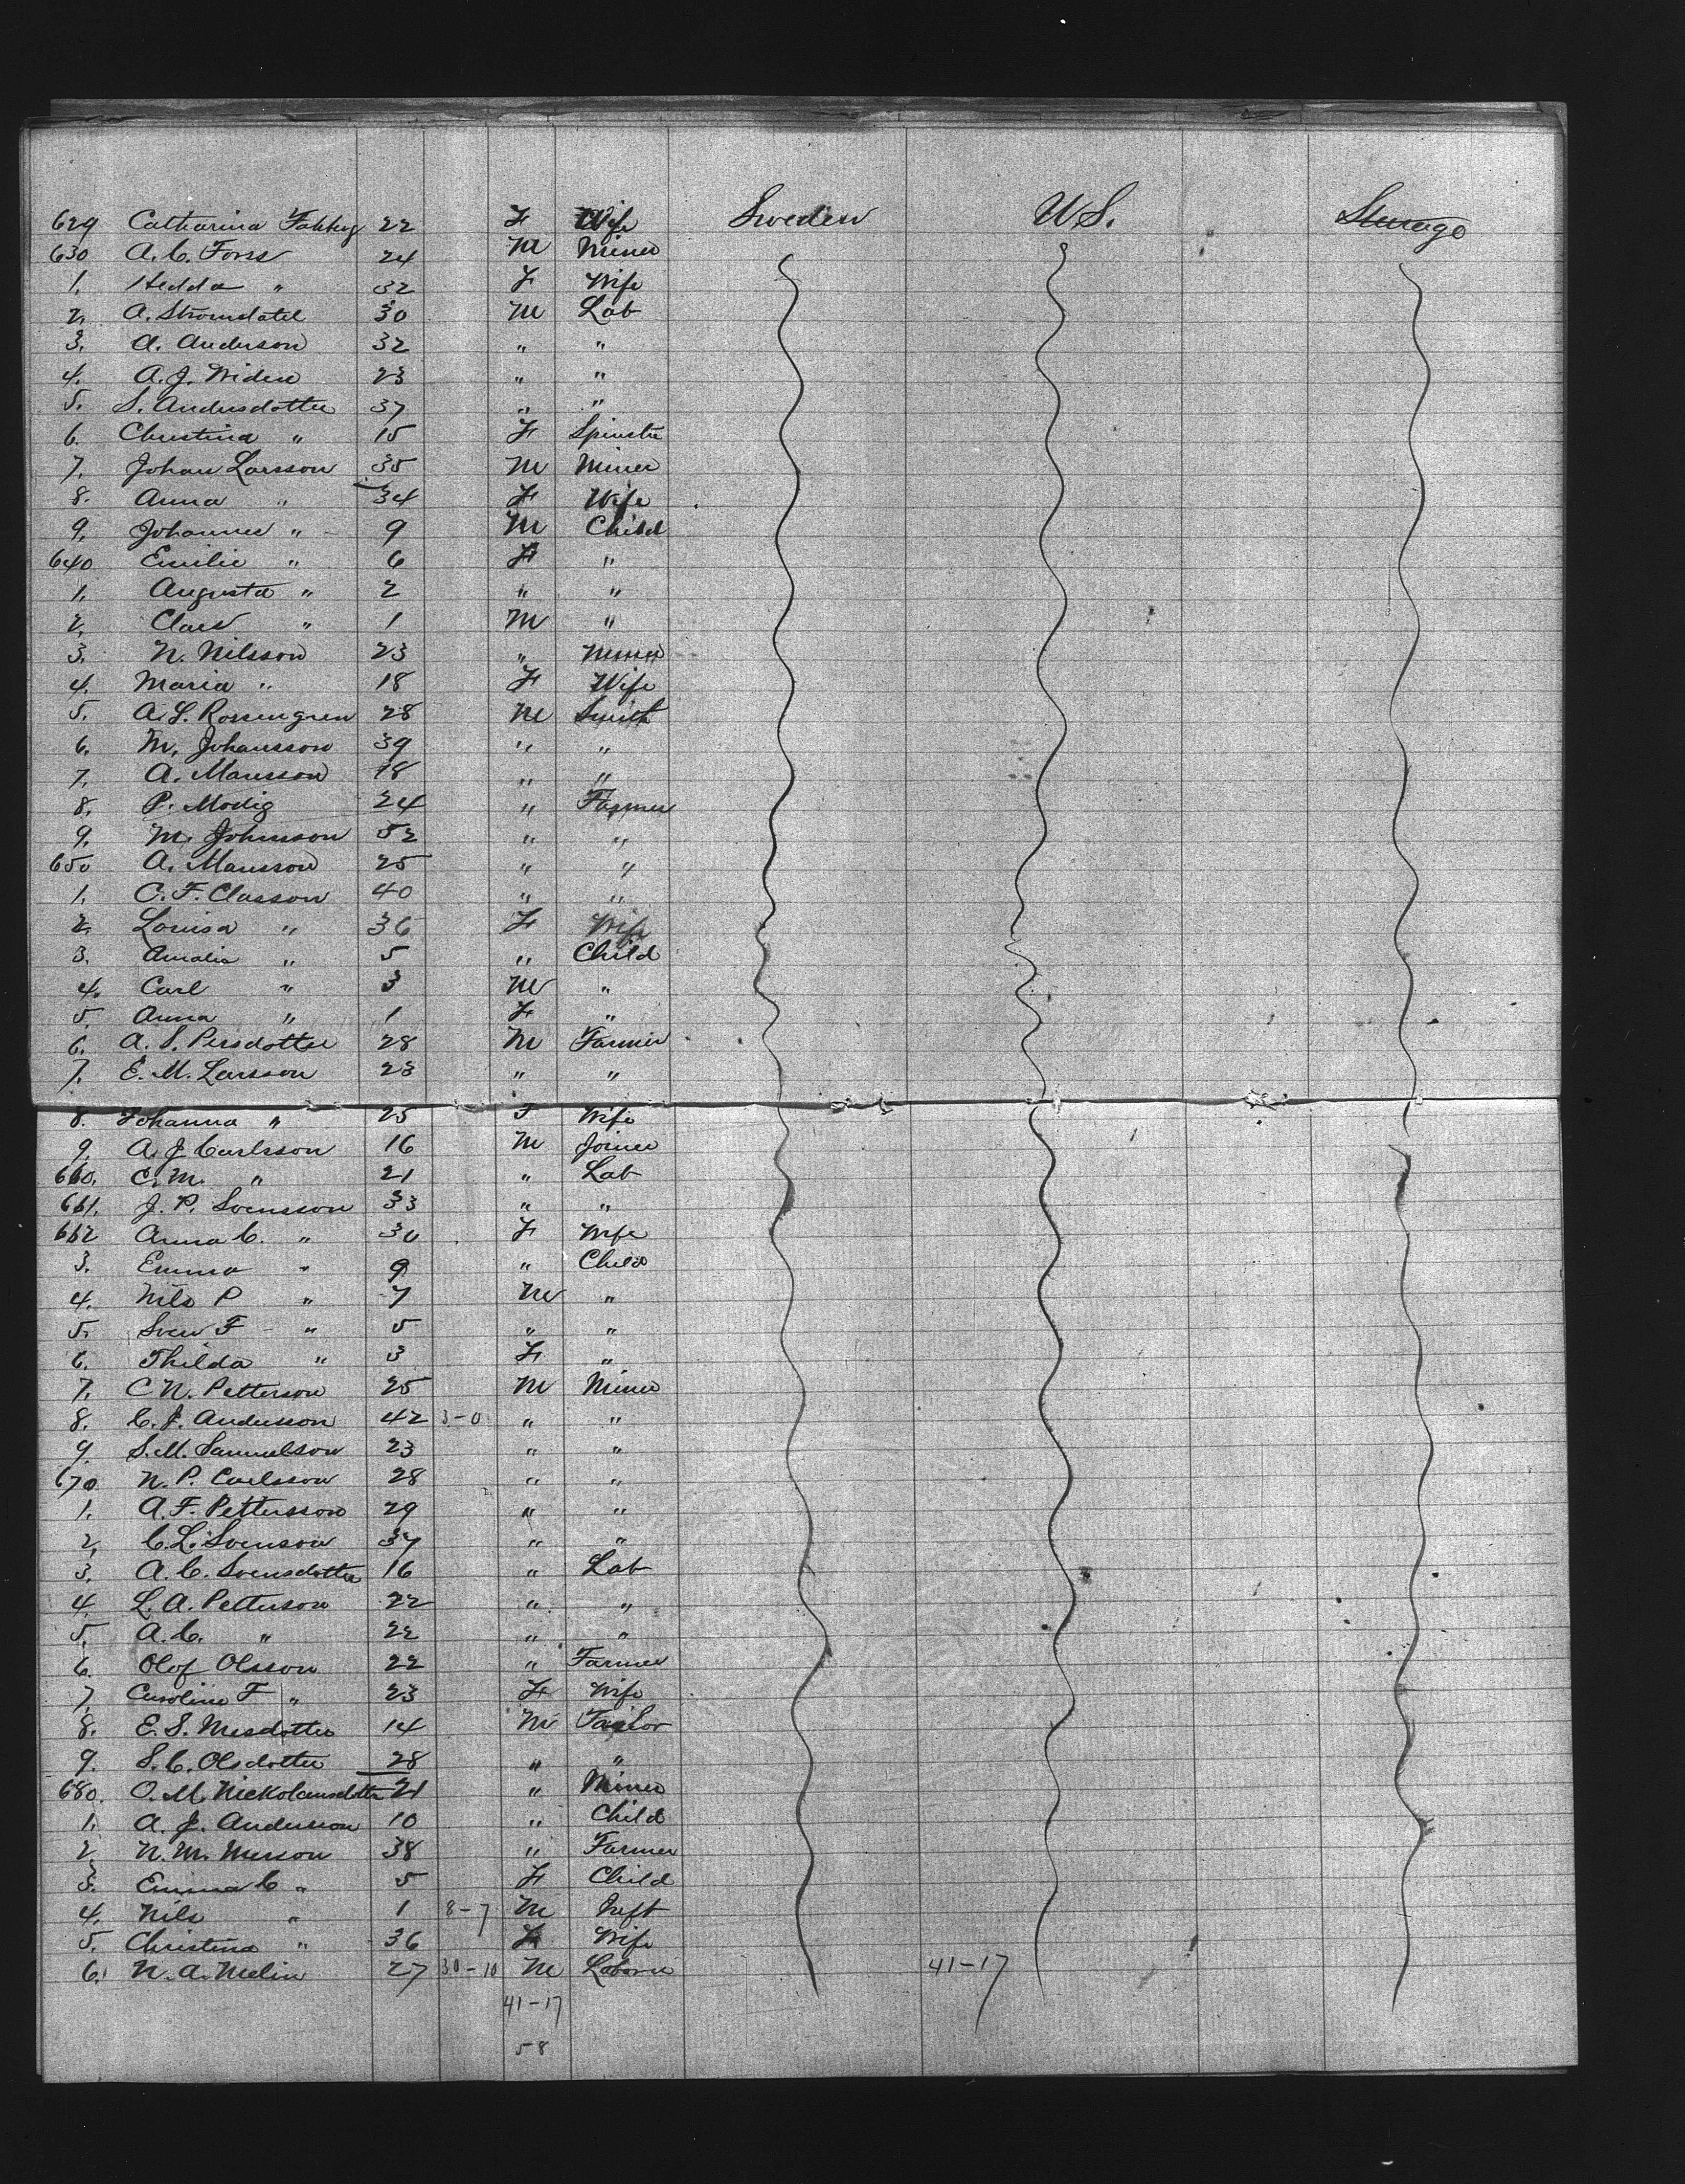 629 Catharina 22 F Wife Sweden U.S. Steerage
630 A. C. Forss 24 M Miner
1. Hedda " 32 F Wife
2. A. Stromdatel 30 M Lab
3. A. Anderson 32 " "
4. A. J. Widen 23 " "
5. S. Andersdotter 37 " "
6. Christina " 15 F Spinster
7. Johan Larsson 35 M Miner
8. Anna " 34 F Wife
9. Johannes " 9 M Child
640 Emilie " 6 F "
1. Augusta " 2 " "
2. Claes " 1 M "
3. N. Nilsson 23 " Miner
4. Maria " 18 F Wife
5. A. L. Rossengren 28 M Smith
6. M. Johansson 39 " "
7. A. Mansson 18 " "
8. P. Modig 24 " Farmer
9. M. Johnson 52 " "
650 A. Mansson 25 " "
1. C. F. Classon 40 " "
2. Louisa " 36 F Wife
3. Amalia " 5 " Child
4. Carl " 3 M "
5. Anna " 1 F "
6. A. S. Persdotter 28 M Farmer
7. E. M. Larsson 23 " "
8. Johanna " 25 F Wife
9. A. J. Carlsson 16 M Joiner
660. C. M. " 21 " Lab
661. J. P. Svensson 33 " "
662 Anna C. " 30 F Wife
3. Emma " 9 " Child
4. Nils P " 7 M "
5. Sven F " 5 " "
6. Thilda " 3 F "
7. C N. Petterson 25 M Miner
8. C. J. Andersson 42 3-0 " "
9. S. M. Samuelson 23 " "
670 N. P. Carlsson 28 " "
1. A. F. Pettersson 29 " "
2. C. L. Svenson 37 " "
3. A. C. Svensdotter 16 " Lab
4. L. A. Petterson 22 " "
5. A. C. " 22 " "
6. Olof Olsson 22 " Farmer
7. Caroline F " 23 F Wife
8. E. S. Nesdotter 14 M Tailor
9. S. C. Olsdotter 28 " "
680. O. M. Nickolausdotter 21 " Miner
1. A. J. Andersson 10 " Child
2. N. M. Merson 38 " Farmer
3. Emma C " 5 F Child
4. Nils " 1 8-7 M Inft
5. Christina " 36 F Wife
6. N. A. Melin 27 30-10 M Laborer 41-17
41-17
58